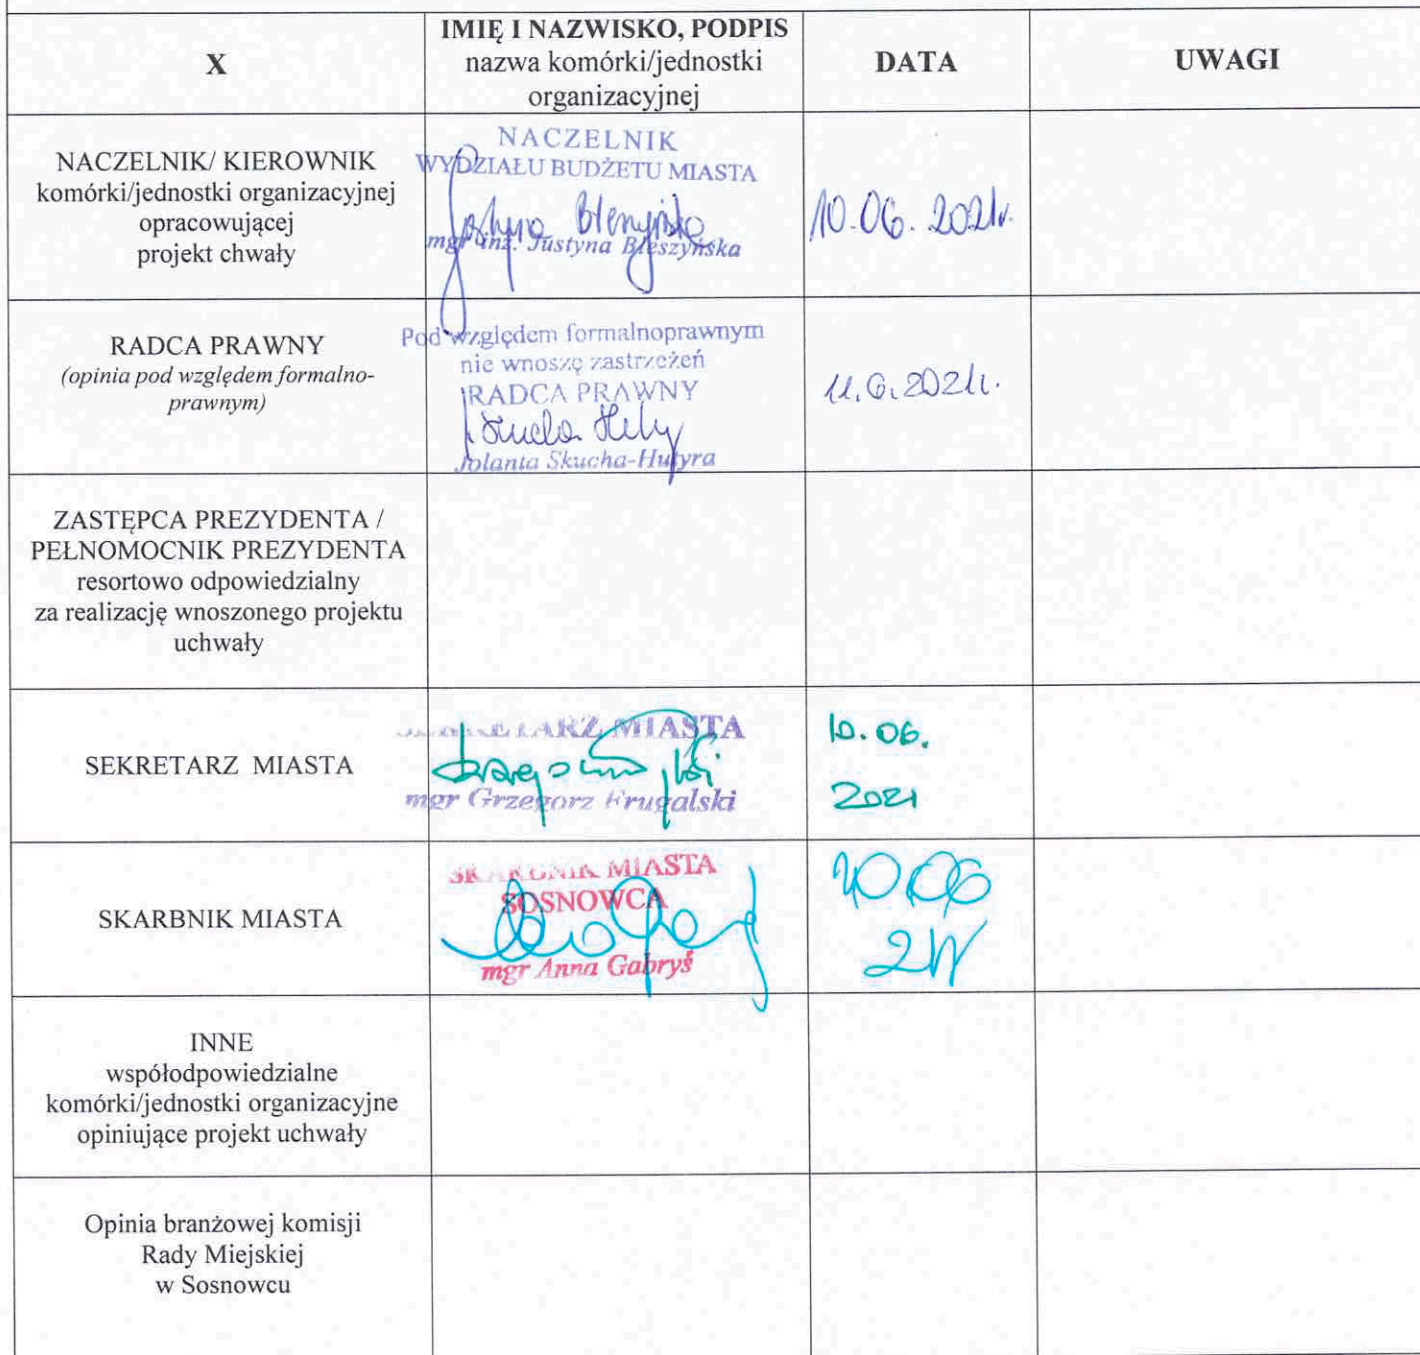 X
IMIĘ I NAZWISKO, PODPIS
nazwa komórki/jednostki
organizacyjnej
DATA
UWAGI
NACZELNIK/ KIEROWNIK
komórki/jednostki organizacyjnej
opracowującej
projekt chwały
NACZELNIK
WYDZIAŁU BUDŻETU MIASTA
mgr inż. Justyna Błeszyńska
10.06.2021r.
RADCA PRAWNY
(opinia pod względem formalno-
prawnym)
Pod względem formalnoprawnym
nie wnoszę zastrzeżeń
RADCA PRAWNY
Jolanta Skucha-Hutyra
11.6.2021r.
ZASTĘPCA PREZYDENTA /
PEŁNOMOCNIK PREZYDENTA
resortowo odpowiedzialny
za realizację wnoszonego projektu
uchwały
SEKRETARZ MIASTA
SEKRETARZ MIASTA
mgr Grzegorz Frugalski
10.06.
2021
SKARBNIK MIASTA
SKARBNIK MIASTA
SOSNOWCA
mgr Anna Gabryś
10 06
INNE
współodpowiedzialne
komórki/jednostki organizacyjne
opiniujące projekt uchwały
Opinia branżowej komisji
Rady Miejskiej
w Sosnowcu